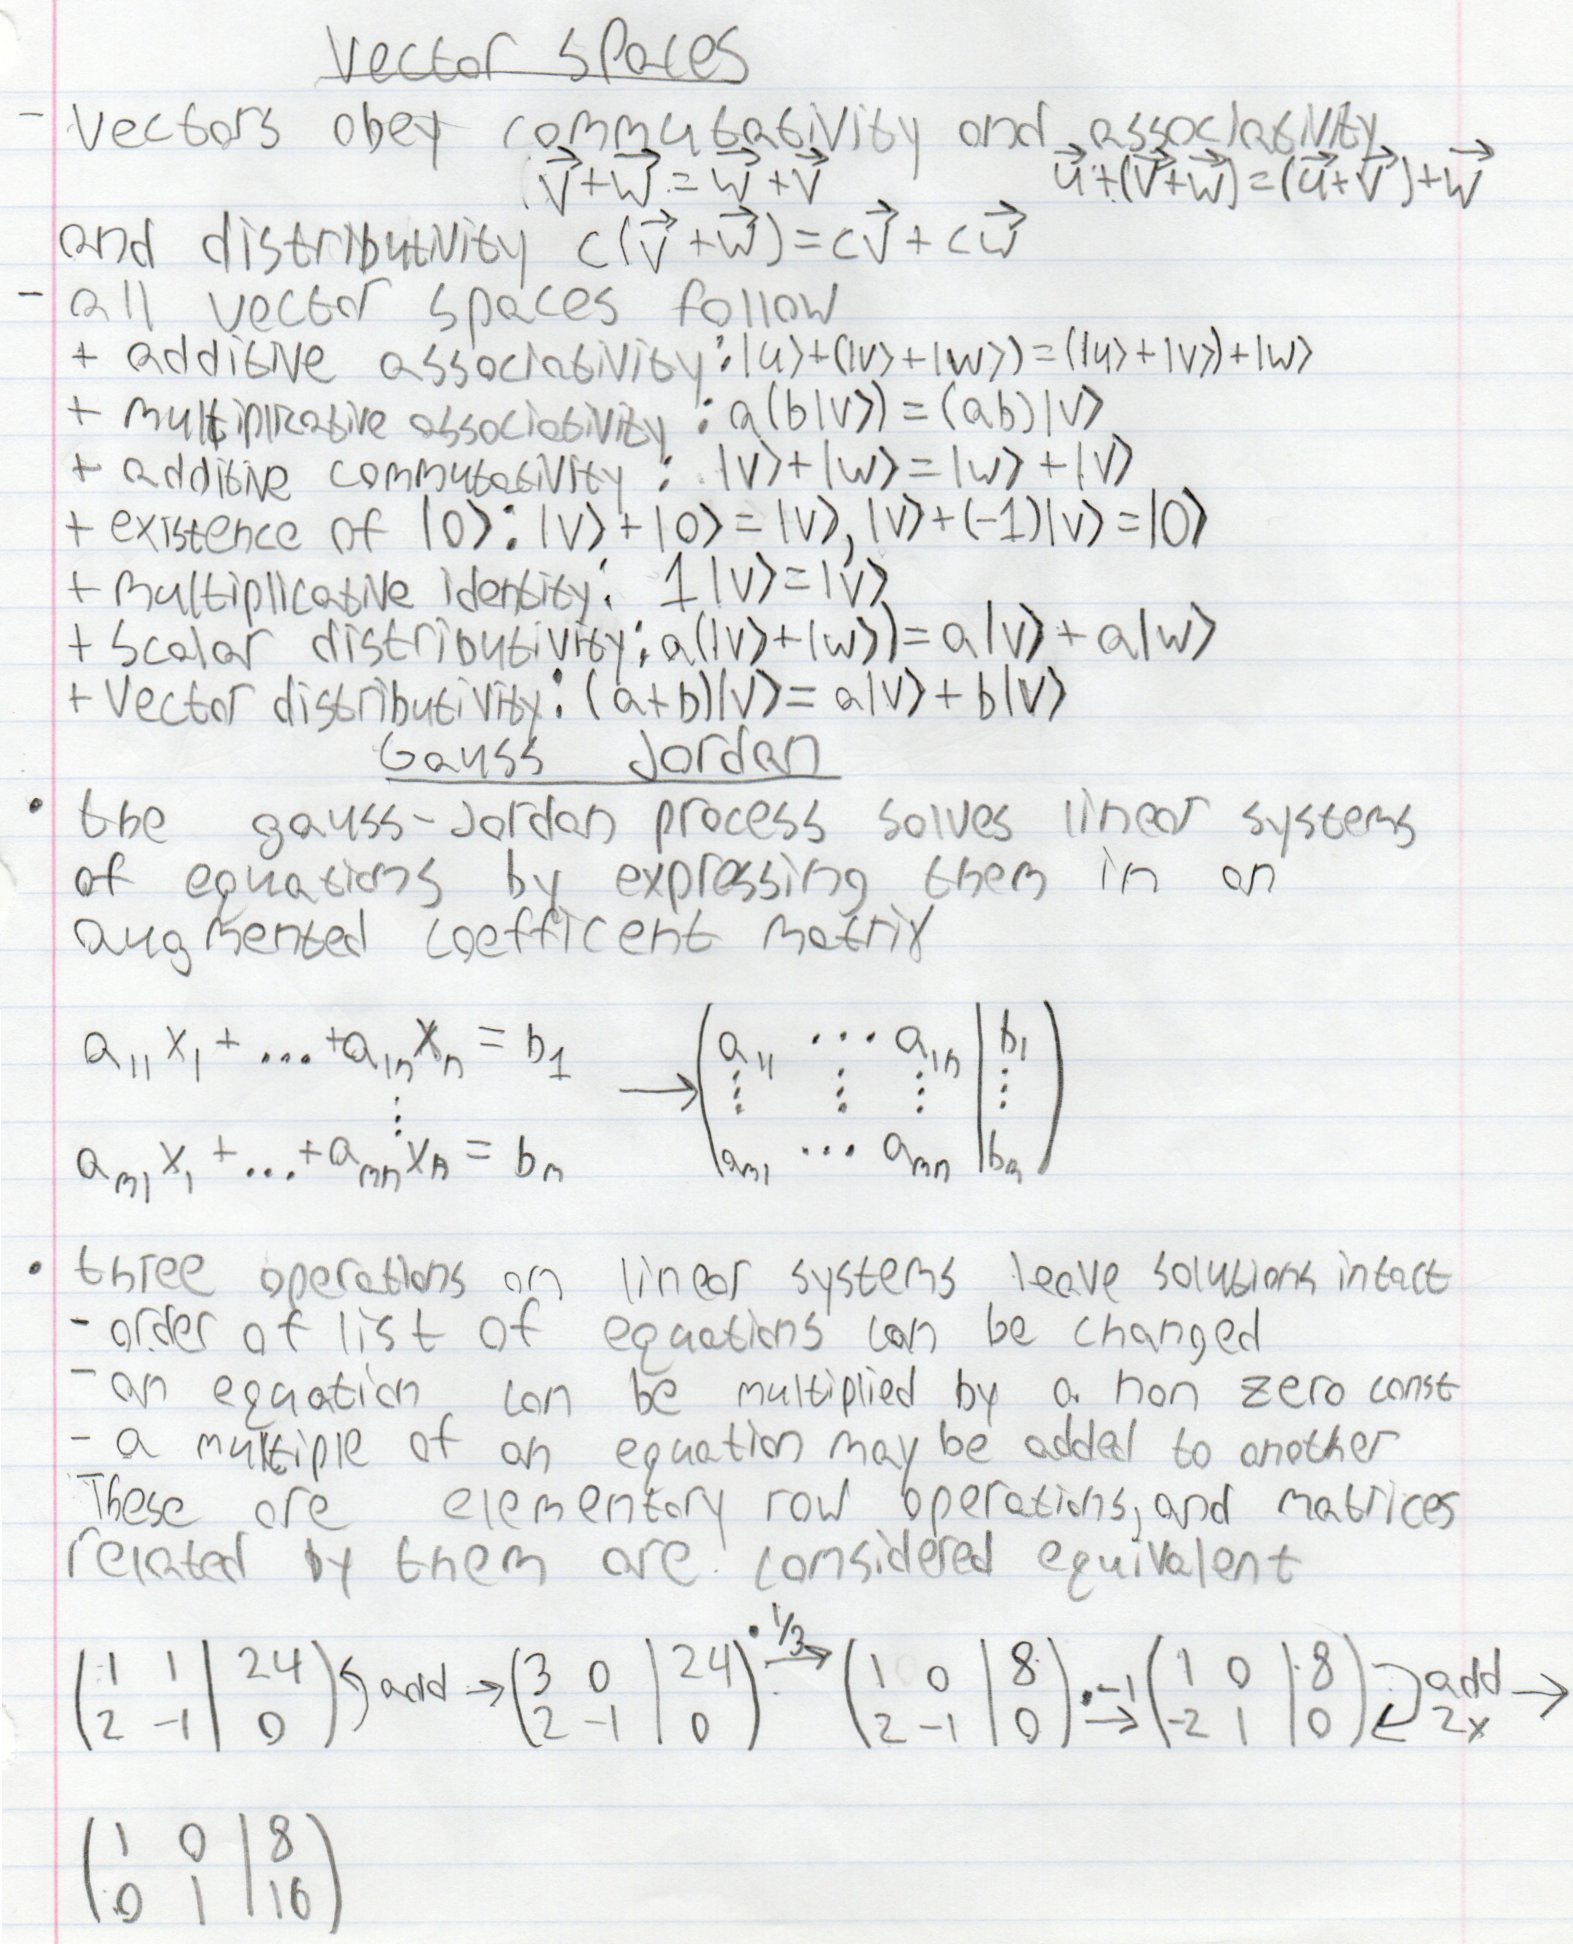 Vector spaces
- Vectors obey commutativity and associativity
v⃗+w⃗=w⃗+v⃗ u⃗+(v⃗+w⃗)=(u⃗+v⃗)+w⃗
and distributivity c(v⃗+w⃗)=cv⃗+cw⃗
- all vector spaces follow
+ additive associativity: |u⟩+(|v⟩+|w⟩)=(|u⟩+|v⟩)+|w⟩
+ multiplicative associativity: a(b|v⟩)=(ab)|v⟩
+ additive commutativity: |v⟩+|w⟩=|w⟩+|v⟩
+ existence of |0⟩: |v⟩+|0⟩=|v⟩, |v⟩+(-1)|v⟩=|0⟩
+ multiplicative identity: 1|v⟩=|v⟩
+ scalar distributivity: a(|v⟩+|w⟩)=a|v⟩+a|w⟩
+ Vector distributivity: (a+b)|v⟩=a|v⟩+b|v⟩
Gauss Jordan
• the gauss-Jordan process solves linear systems
of equations by expressing them in an
augmented coefficent matrix
a₁₁x₁+...+a₁ₙxₙ=b₁ → (a₁₁ ... a₁ₙ | b₁)
⋮ ⋮ ⋮ ⋮ ⋮
aₘ₁x₁+...+aₘₙxₙ=bₘ (aₘ₁ ... aₘₙ | bₘ)
• three operations on linear systems leave solutions intact
- order of list of equations can be changed
- an equation can be multiplied by a non zero const
- a multiple of an equation may be added to another
These are elementary row operations, and matrices
related by them are considered equivalent
(1 1 | 24) add → (3 0 | 24) •1/3 → (1 0 | 8) •-1 → (1 0 | 8) add →
(2 -1 | 0) (2 -1 | 0) (2 -1 | 0) (-2 1 | 0) 2x
(1 0 | 8)
(0 1 | 16)